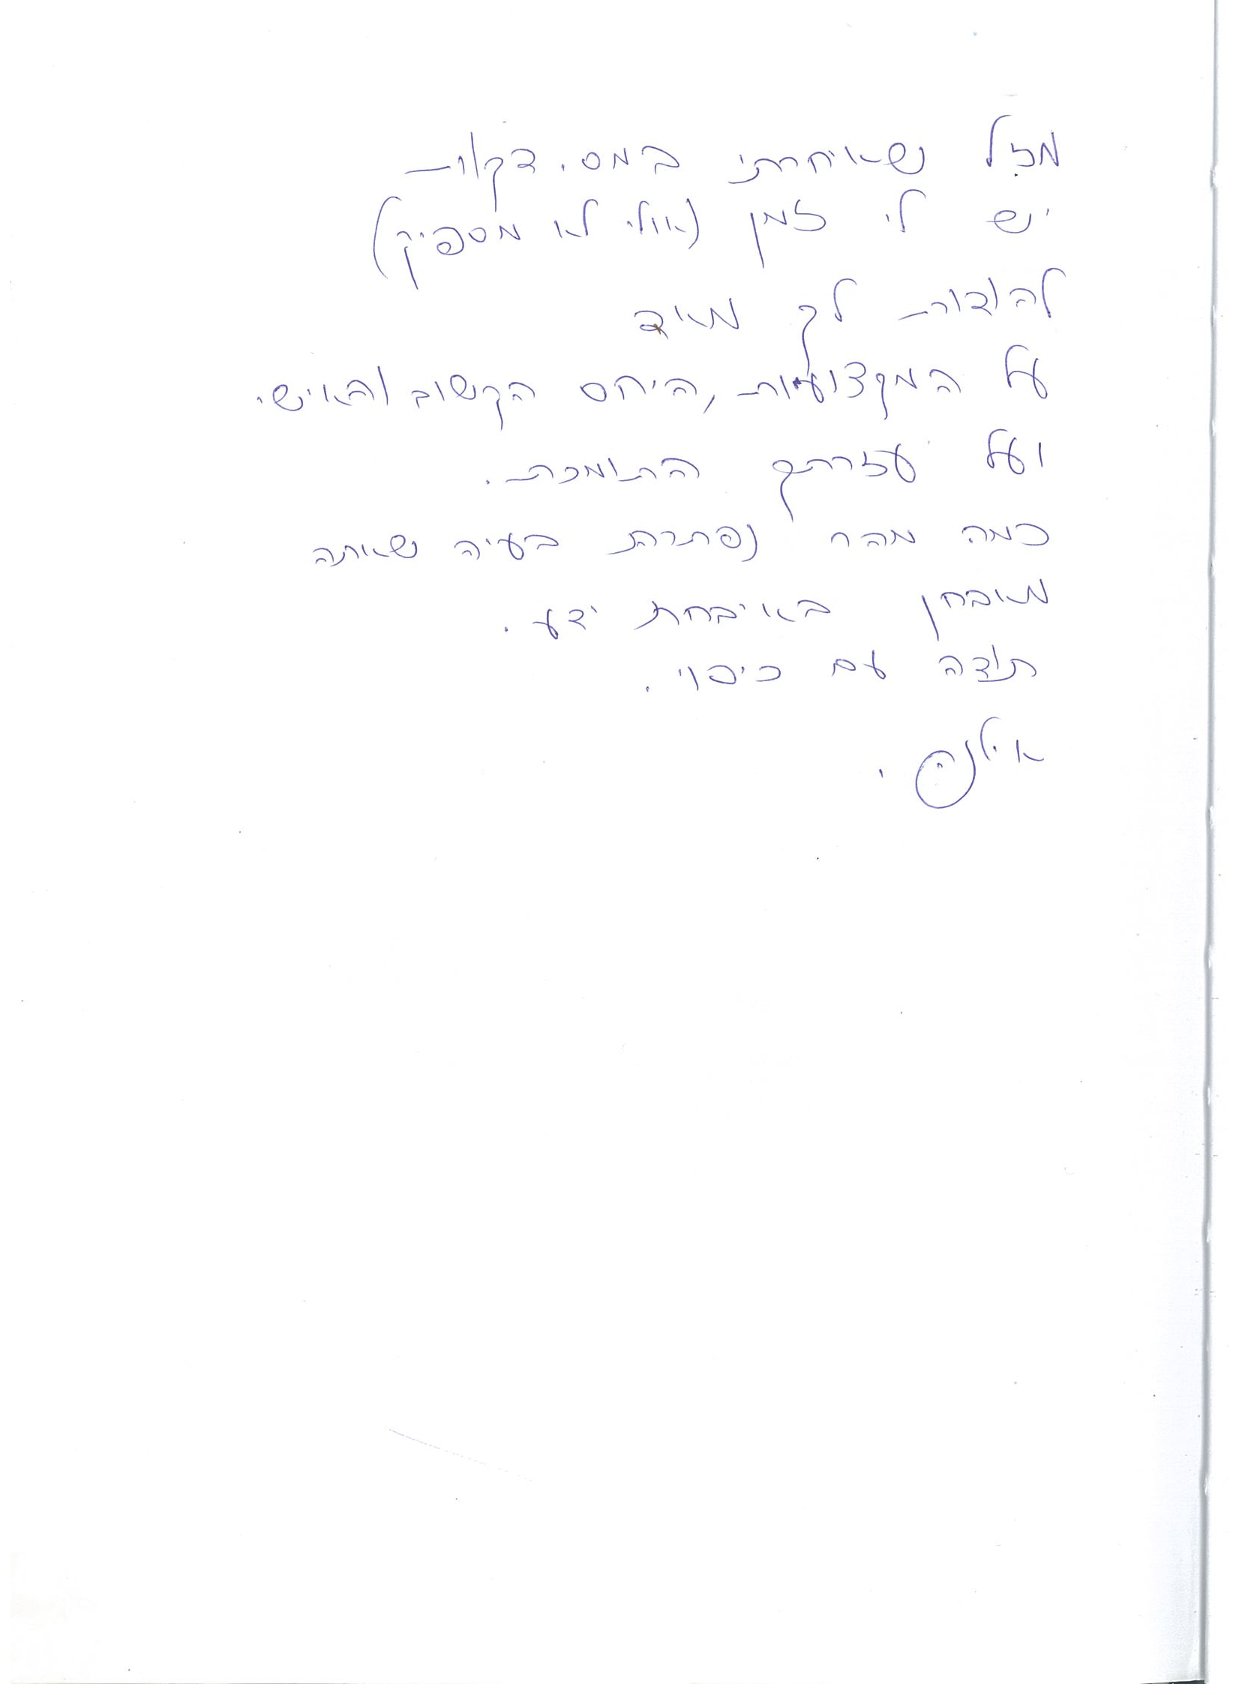 מזל שאיחרתי במס. דקות
יש לי זמן (אולי לא מספיק)
להודות לך מאיד
על המקצועיות, היחס הקשוב והאישי
ועל עזרתך התומכת.
כמה מהר נפתרת בעיה שאתה
מאובחן באיבחת ידע.
תודה עם כיפוי.
אילנה.